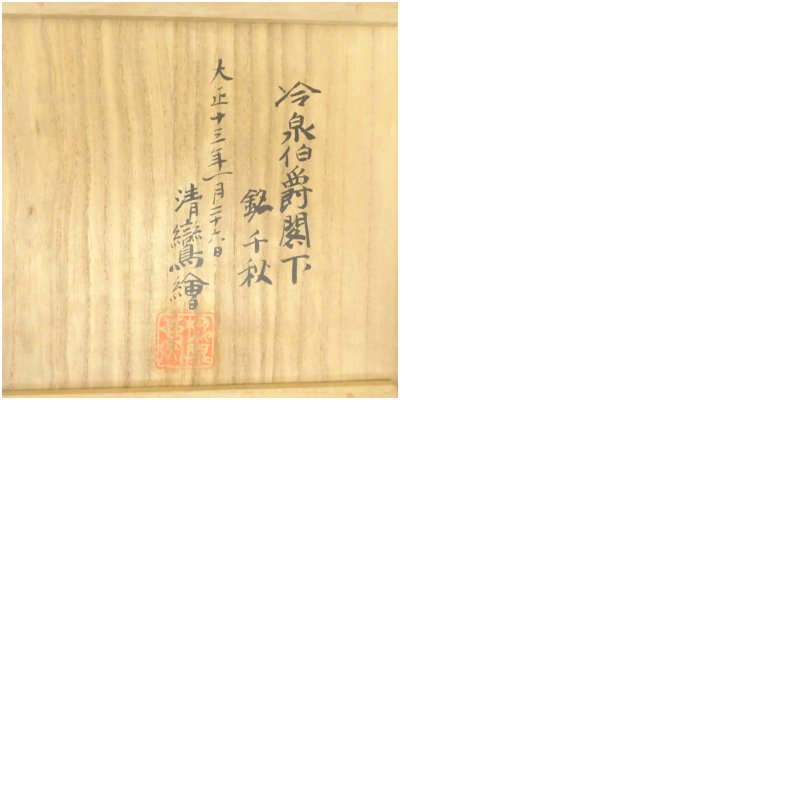 冷泉伯爵閣下
銘千秋
大正十三年一月二十六日
清鸞繪